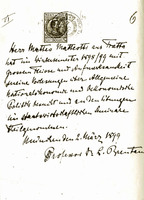 6
Herr Matteo Matteotti aus Fratta
hat im Wintersemester 1898/99 mit
grossem Fleisse und Aufmerksamkeit
meine Vorlesungen über Allgemeine
Nationalökonomie und Oekonomische
Politik besucht und an den Übungen
im staatswirtschaftlichen Seminare
theilgenommen.
München den 2. März 1899
Professor Dr. L. Brentano